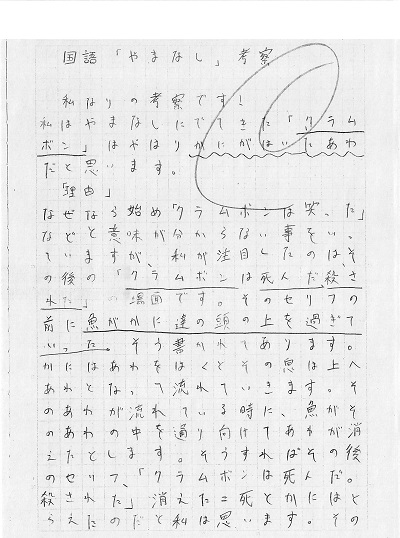 国語「やまなし」考察
私なりの考察です!
私はやまなしにでてきた「クラム
ボン」はやはりかにがはいたあわ
だと思います。
「理由」
なぜなら始め「クラムボンは笑った」
などと意味が分からない事をいっ
ていますが、私が注目したのは、そ
の後の「クラムボンは死んだ、殺さ
れた」の場面です。そのセリフの
前に魚がかに達の頭の上を過ぎて
いった。そう書かれてあります。
かにはあわをはくとその息は上へ
あわとなって流れていきます。そ
のあわが流れている時に、魚がそ
のあわの中を通り向けてあわが消
えたとします。そうすればその後
のセリフ、「クラムボンは死んだ。
殺された」消えた=死とかにはと
らえたのだと私は思います。その